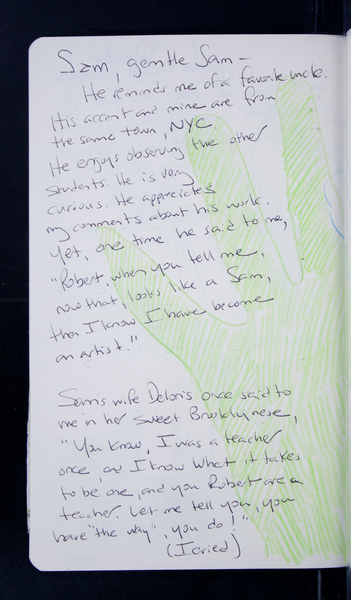 Sam, gentle Sam –
He reminds me of a favorite uncle.
His accent and mine are from
the same town, NYC.
He enjoys observing the other
students. He is very
curious. He appreciates
my comments about his work.
Yet, one time he said to me,
"Robert, when you tell me,
now that, looks like a Sam,
then I know I have become
an artist."
Sam's wife Deloris once said to
me in her sweet Brooklynese,
"You know, I was a teacher
once, and I know what it takes
to be one, and you Robert are a
teacher. Let me tell you, you
have "the way", you do!"
(I cried)